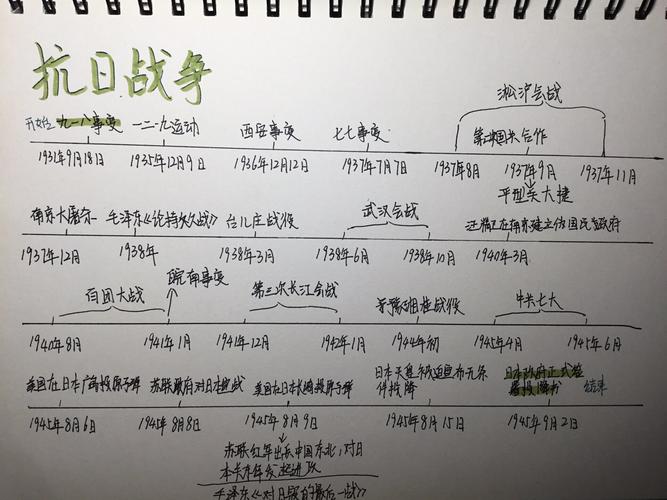 抗日战争
淞沪会战
开始 九一八事变 一二·九运动 西安事变 七七事变 第二次国共合作
1931年9月18日 1935年12月9日 1936年12月12日 1937年7月7日 1937年8月 1937年9月 1937年11月
平型关大捷
南京大屠杀 毛泽东《论持久战》 台儿庄战役 武汉会战 汪精卫在南京建立伪国民政府
1937年12月 1938年 1938年3月 1938年6月 1938年10月 1940年3月
皖南事变
百团大战 第三次长江会战 豫湘桂战役 中共七大
1940年8月 1941年1月 1941年12月 1942年1月 1944年初 1945年4月 1945年6月
日本天皇 宣布无条 日本政府正式签
美国在日本广岛投原子弹 苏联政府对日本宣战 美国在日本长崎投原子弹 件投降 署投降书 结束
1945年8月6日 1945年8月8日 1945年8月9日 1945年8月15日 1945年9月2日
苏联红军出兵中国东北,对日
本关东军发起进攻
毛泽东《对日寇的最后一战》